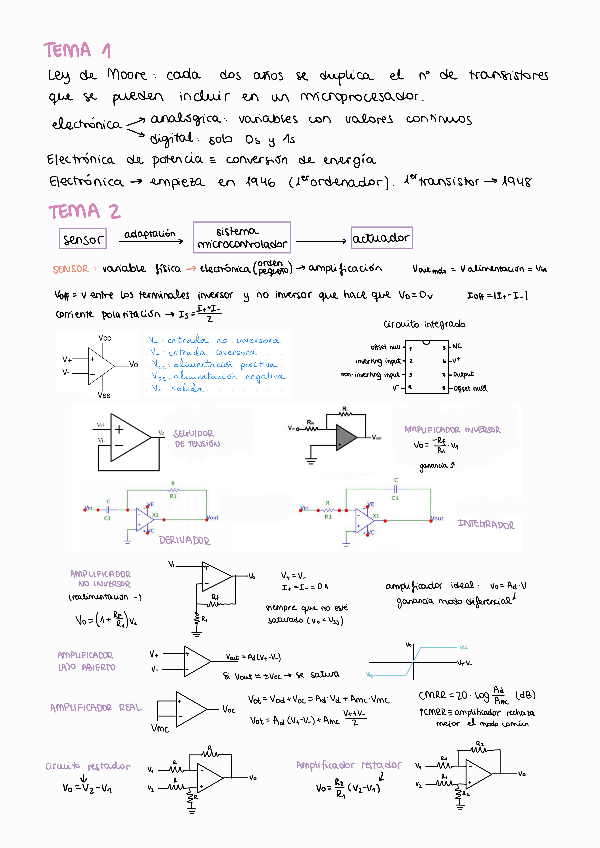 TEMA 1
Ley de Moore: cada dos años se duplica el nº de transistores
que se pueden incluir en un microprocesador.
electrónica → analógica: variables con valores continuos
→ digital: solo 0s y 1s
Electrónica de potencia ≡ conversión de energía
Electrónica → empieza en 1946 (1er ordenador). 1er transistor → 1948
TEMA 2
sensor adaptación → sistema microcontrolador → actuador
SENSOR: variable física → electrónica (orden pequeño) → amplificación Vout máx = V alimentación = Vin
Voff = V entre los terminales inversor y no inversor que hace que Vo = 0v Ioff = |I+ - I-|
corriente polarización → Is = I+ + I- / 2
circuito integrado
Vcc
V+
V-
Vo
Vss
V+: entrada no inversora
V-: entrada inversora
Vcc: alimentación positiva
Vss: alimentación negativa
Vo: salida
offset null 1
inverting input 2
non-inverting input 3
V- 4
5 NC
6 V+
7 output
8 offset null
SEGUIDOR
DE TENSIÓN
AMPLIFICADOR INVERSOR
Vo = -RF/R1 · V1
ganancia
Vin C C1 R R1 VE X1 VC Vout
DERIVADOR
Vin R R1 C C1 VE X1 VC Vout
INTEGRADOR
AMPLIFICADOR
NO INVERSOR
(realimentación -)
Vo = (1 + RF/R1) V2
V+ = V-
I+ = I- = 0A
siempre que no esté
saturado (Vo = Vss)
amplificador ideal: Vo = Ad · V
ganancia modo diferencial
AMPLIFICADOR
LAZO ABIERTO
V+
V-
Vout = Ad (V+ - V-)
Si Vout = ±Vcc → se satura
Vo
Vcc
V+ V-
AMPLIFICADOR REAL
Vmc
Voc
Vot = Vod + Voc = Ad · Vd + Amc · Vmc
Vot = Ad (V+ - V-) + Amc V+ + V- / 2
CMRR = 20 · log Ad/Amc (dB)
↑CMRR ≡ amplificador rechaza
mejor el modo común
circuito restador
Vo = V2 - V1
V1 R R
V2 R R
Vo
Amplificador restador
Vo = R2/R1 (V2 - V1)
V1 R1 R2
V2 R1 R2
Vo